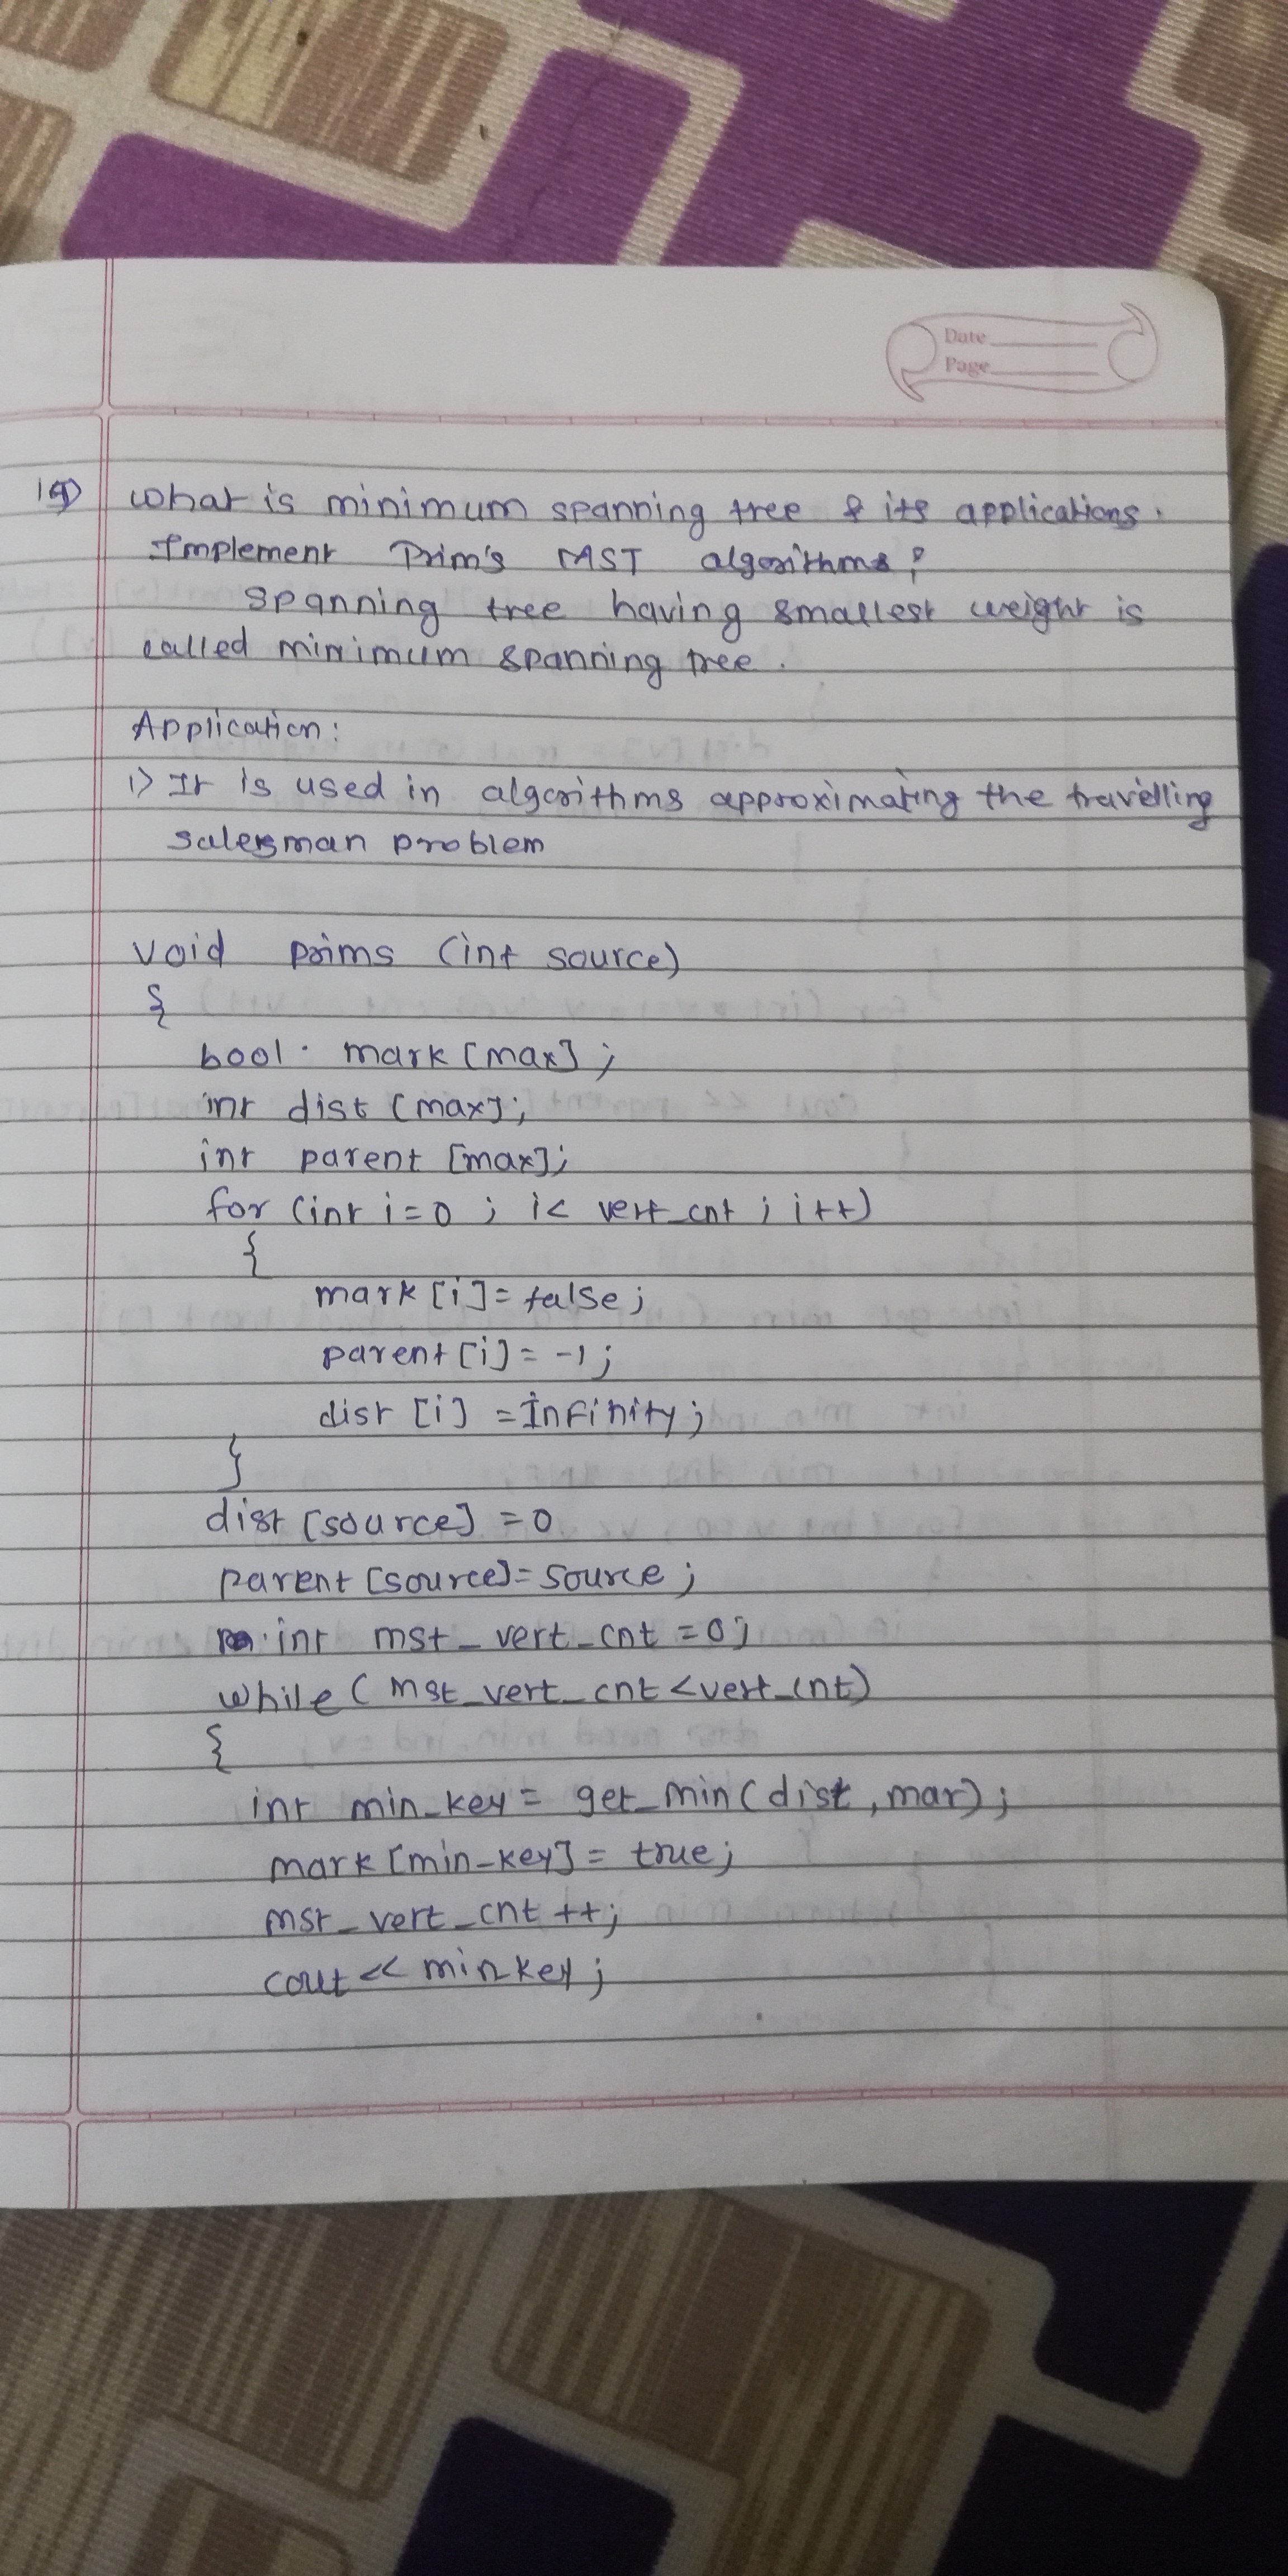 Date
Page
19) What is minimum spanning tree & its applications.
Implement Prim's MST algorithms?
Spanning tree having smallest weight is
called minimum spanning tree.
Application:
1) It is used in algorithms approximating the travelling
salesman problem
void prims (int source)
{
bool mark [max];
int dist [max];
int parent [max];
for (int i=0 ; i< vert_cnt ; i++)
{
mark [i] = false;
parent [i] = -1;
dist [i] = Infinity;
}
dist [source] = 0
parent [source] = source;
int mst_vert_cnt = 0;
while ( mst_vert_cnt < vert_cnt)
{
int min_key = get_min( dist , mar) ;
mark [min_key] = true;
mst_vert_cnt ++;
cout << minkey ;